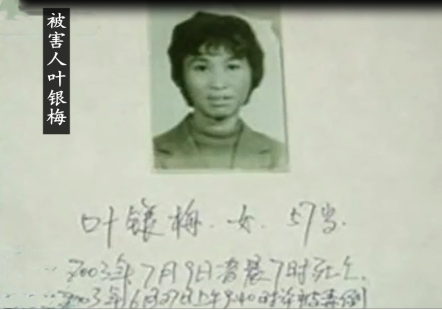 被害人叶银梅
叶银梅.女.57岁.
2003年7月9日 7时死亡.
2003年6月27日上午9:40时许被 倒